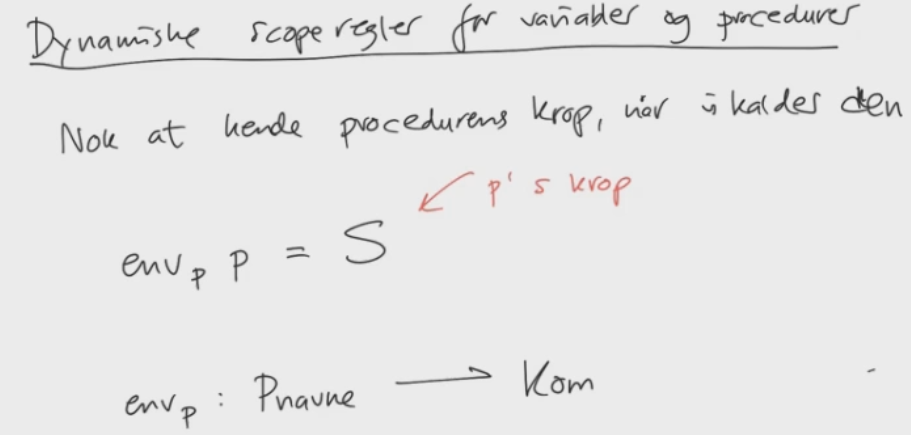 Dynamiske scoperegler for variabler og procedurer
Nok at kende procedurens krop, når vi kalder den
p's krop
env_p p = S
env_p : Pnavne → Kom